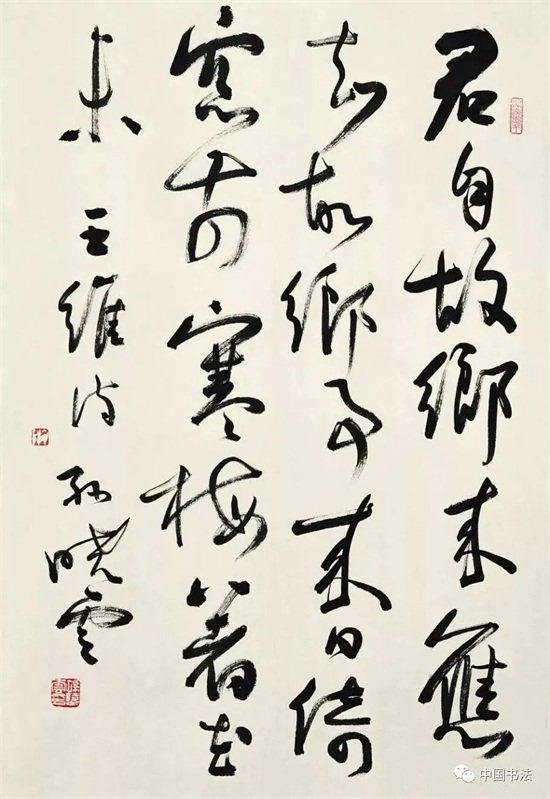 君自故鄉来應
知故鄉事来日綺
窓前寒梅著花
未 王維诗 孙曉雲
中国书法